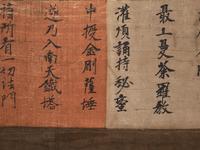 最上曼荼羅教
灌頂誦持秘密
中授金剛薩埵
迺乃入南天鐵塔
諸所有一切法門